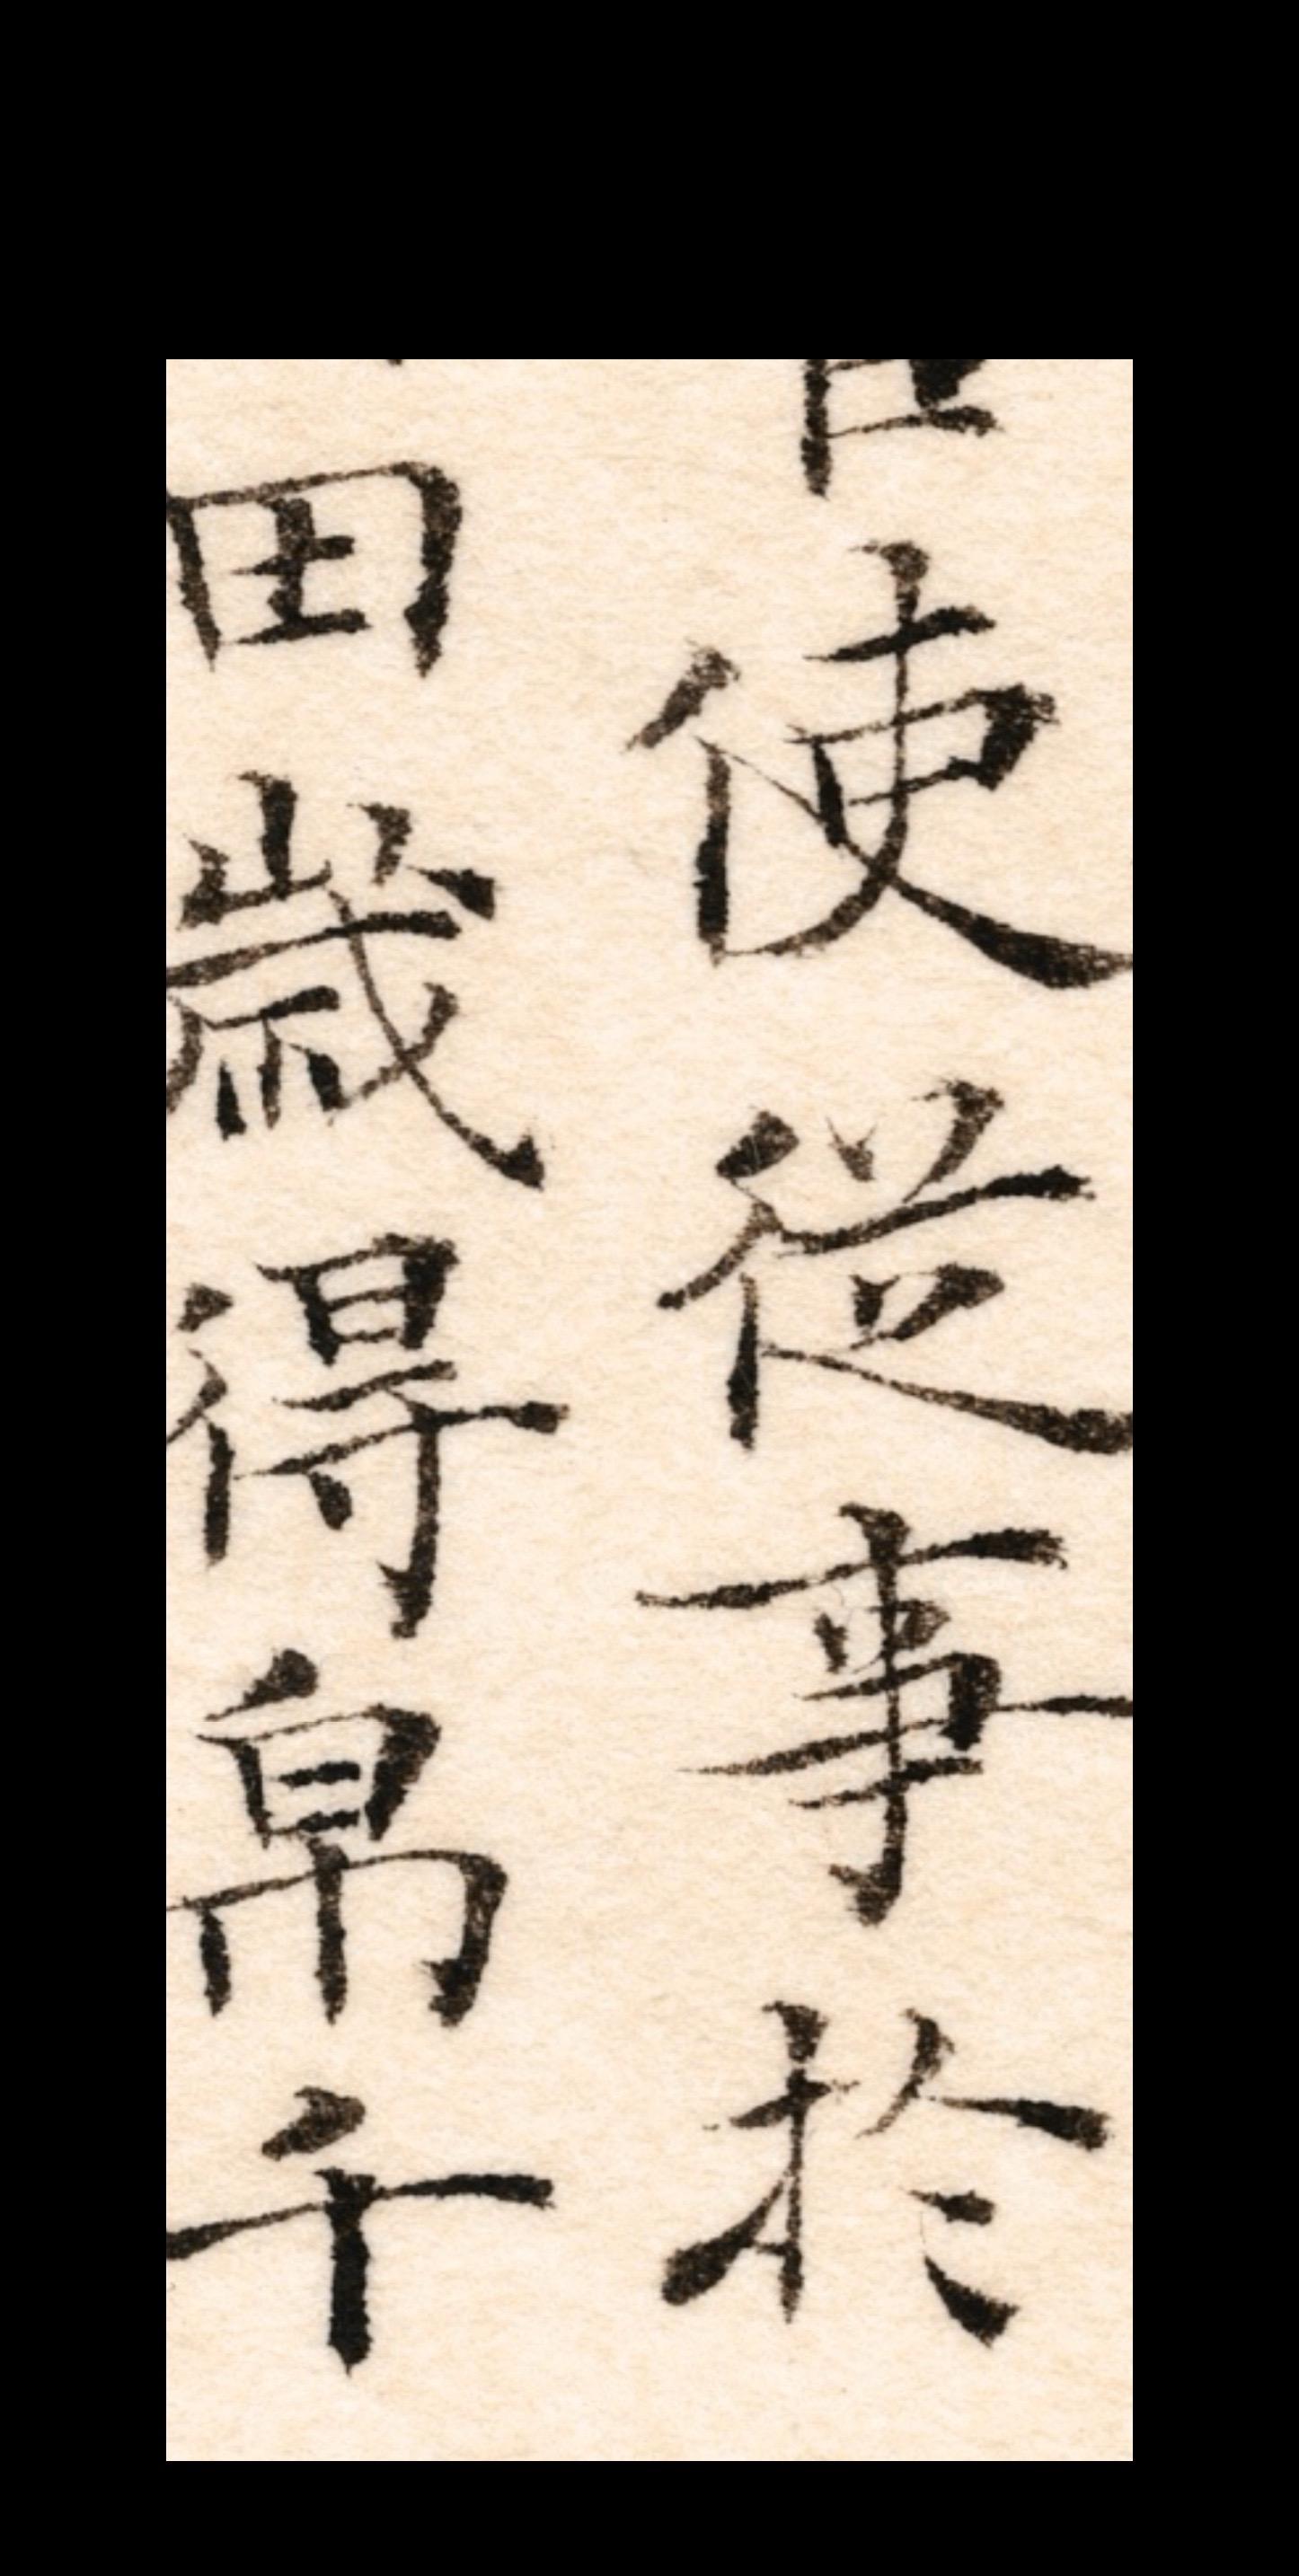 使從事於
田歲得帛千